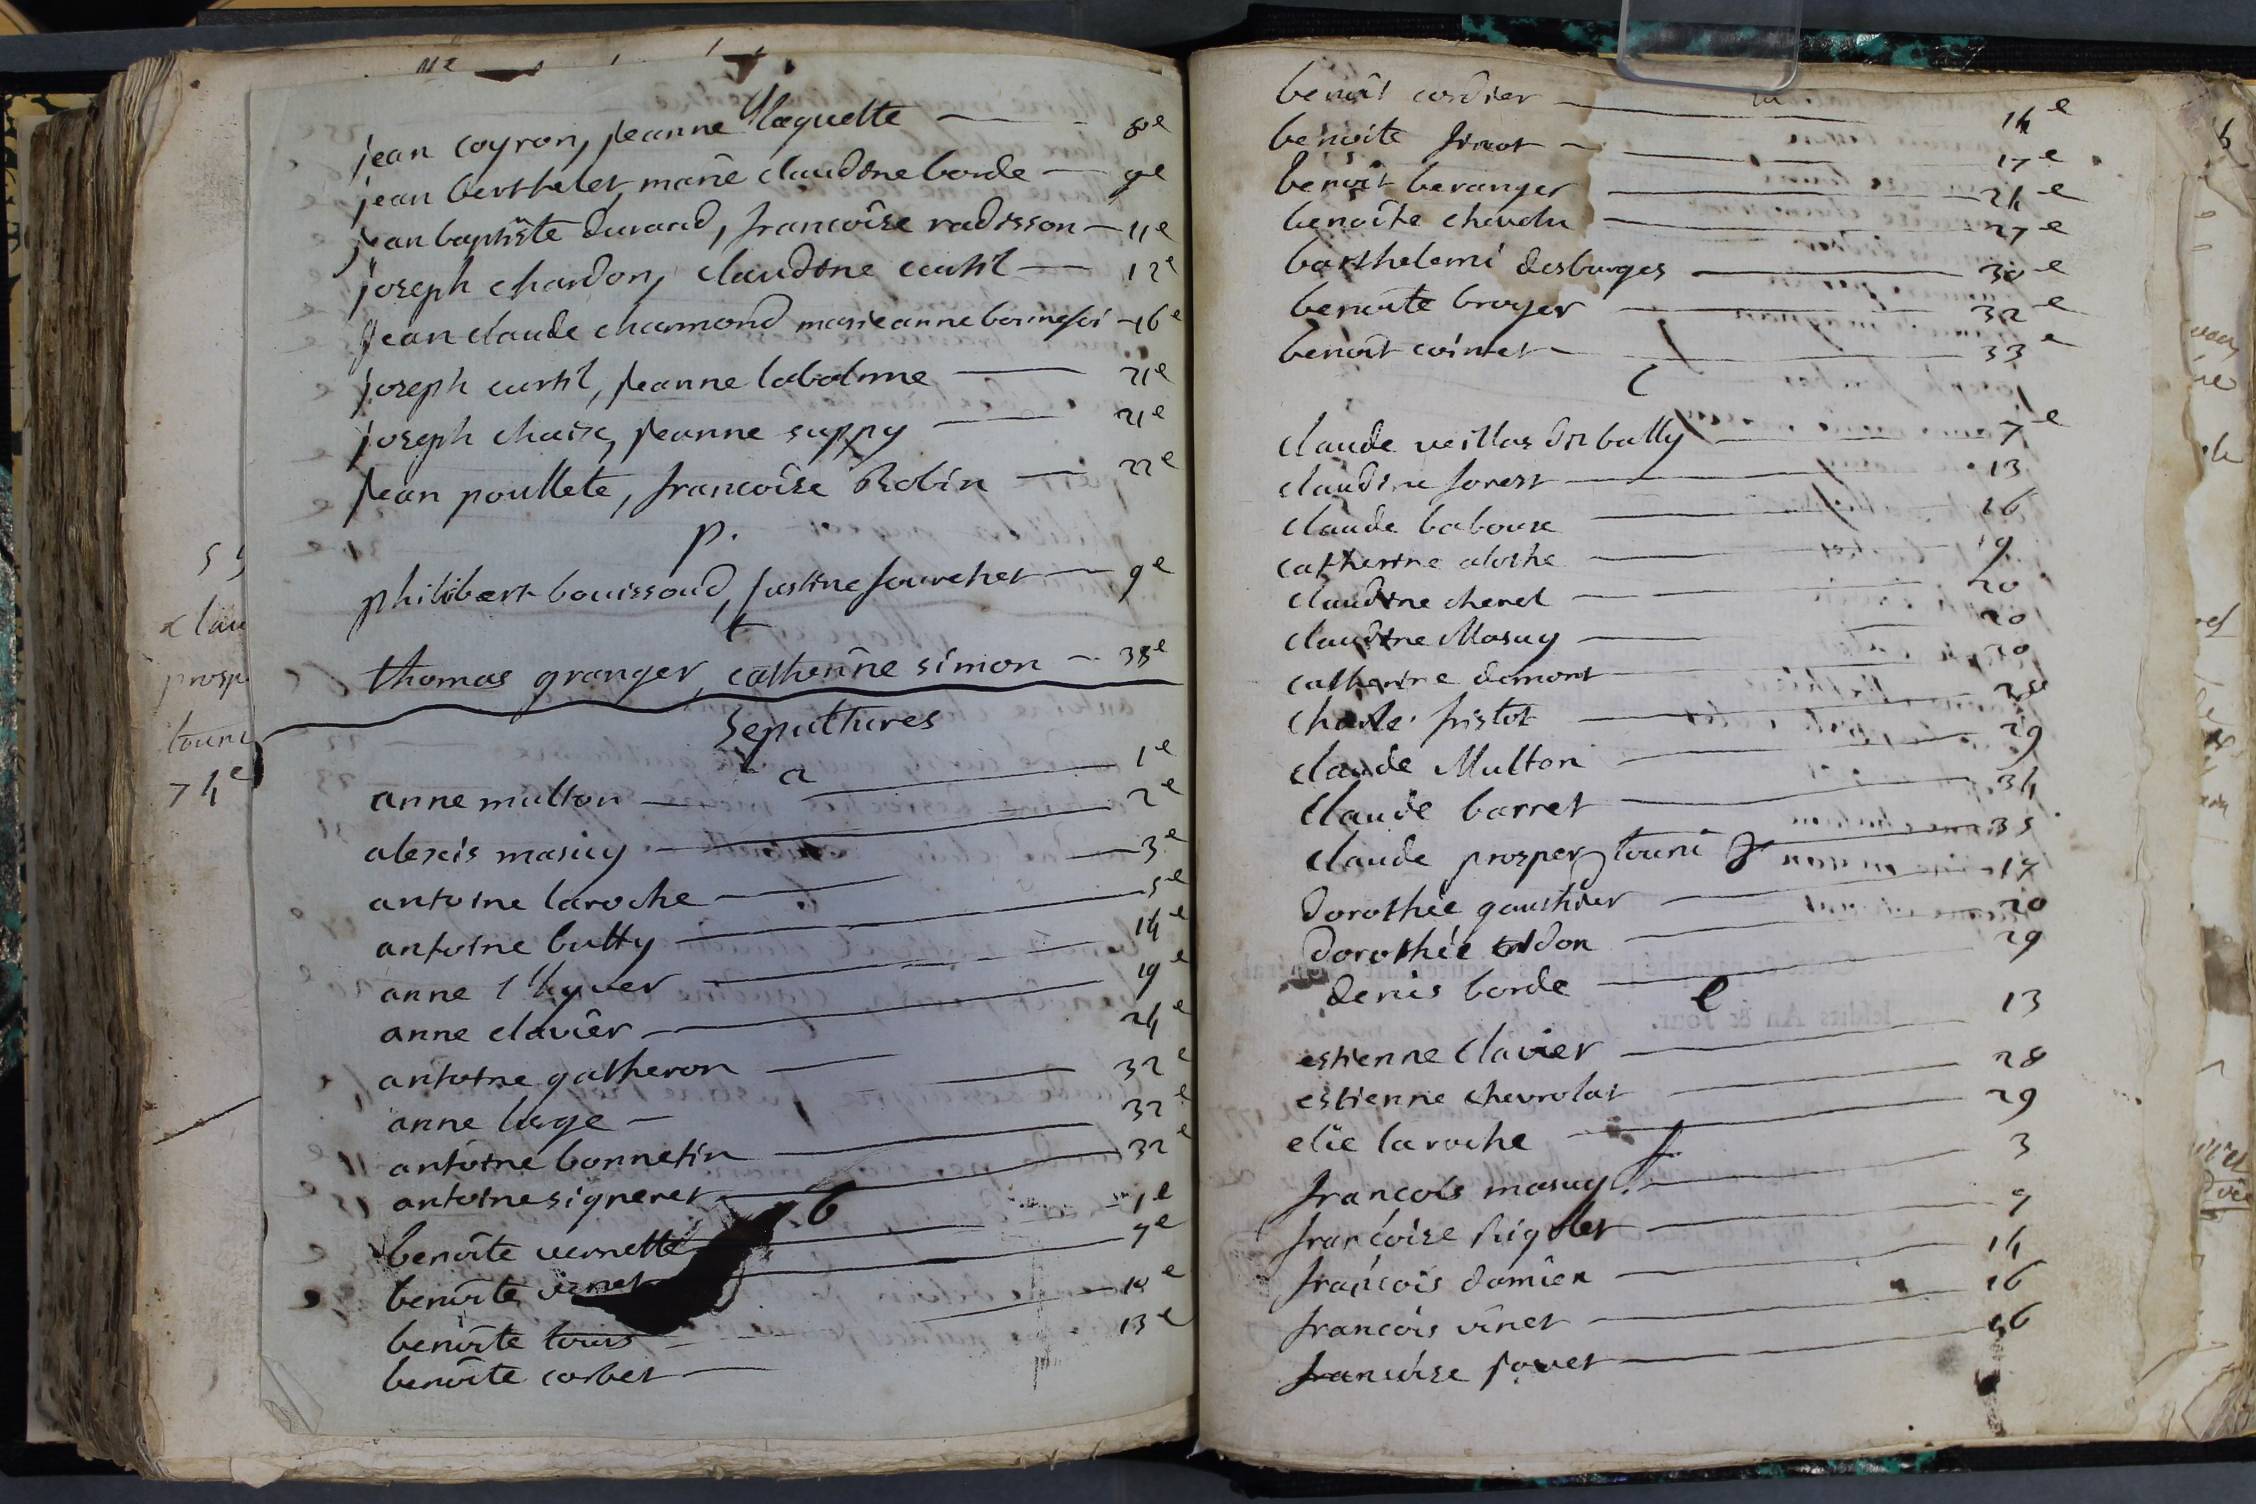 jean coyron, jeanne laquette — 8e
jean berthelet, marie claudine borde — 9e
jean baptiste durand, francoise radisson — 11e
joseph chardon, claudine curtil — 12e
jean claude chamond marie anne — 16e
joseph curtil, jeanne labalme — 21e
joseph chaize, jeanne suppy — 21e
jean poullete, francoise Robin — 22e
p.
philibert bouissoud, justine fourchet — 9e
t
thomas granger, catherine simon — 38e
Sepultures
a
anne multon — 1e
alexis masuy — 2e
antoine laroche — 3e
antoine butty — 5e
anne l'hyver — 14e
anne clavier — 19e
antoine gatheron — 24e
anne large — 32e
antoine bonnetin — 32e
antoine signeret — 32e
b
benoite vernette — 1e
benoite vernet — 7e
benoite — 12e
benoite corbet — 13e
benoit cordier — 14e
benoite — 17e
benoit beranger — 24e
benoite chevalu — 27e
barthelemi desburges — 30e
benoite broyer — 32e
benoit cointet — 33e
c
claude veillas dit butty — 7e
claudine forest — 13
claude baboux — 16
catherine — 19
claudine cheret — 20
claudine Masuy — 20
catherine demont — 20
charle fristot
claude Multon — 29
claude barret — 34
claude prosper touni — 35
dorothée gauthier — 17
dorothée — 20
denis borde — 29
e
estienne clavier — 13
estienne chevrolat — 28
elie laroche — 29
f.
francois masuy — 3
francoise Rigolet — 9
francois damien — 14
francois vinet — 16
francoise — 16